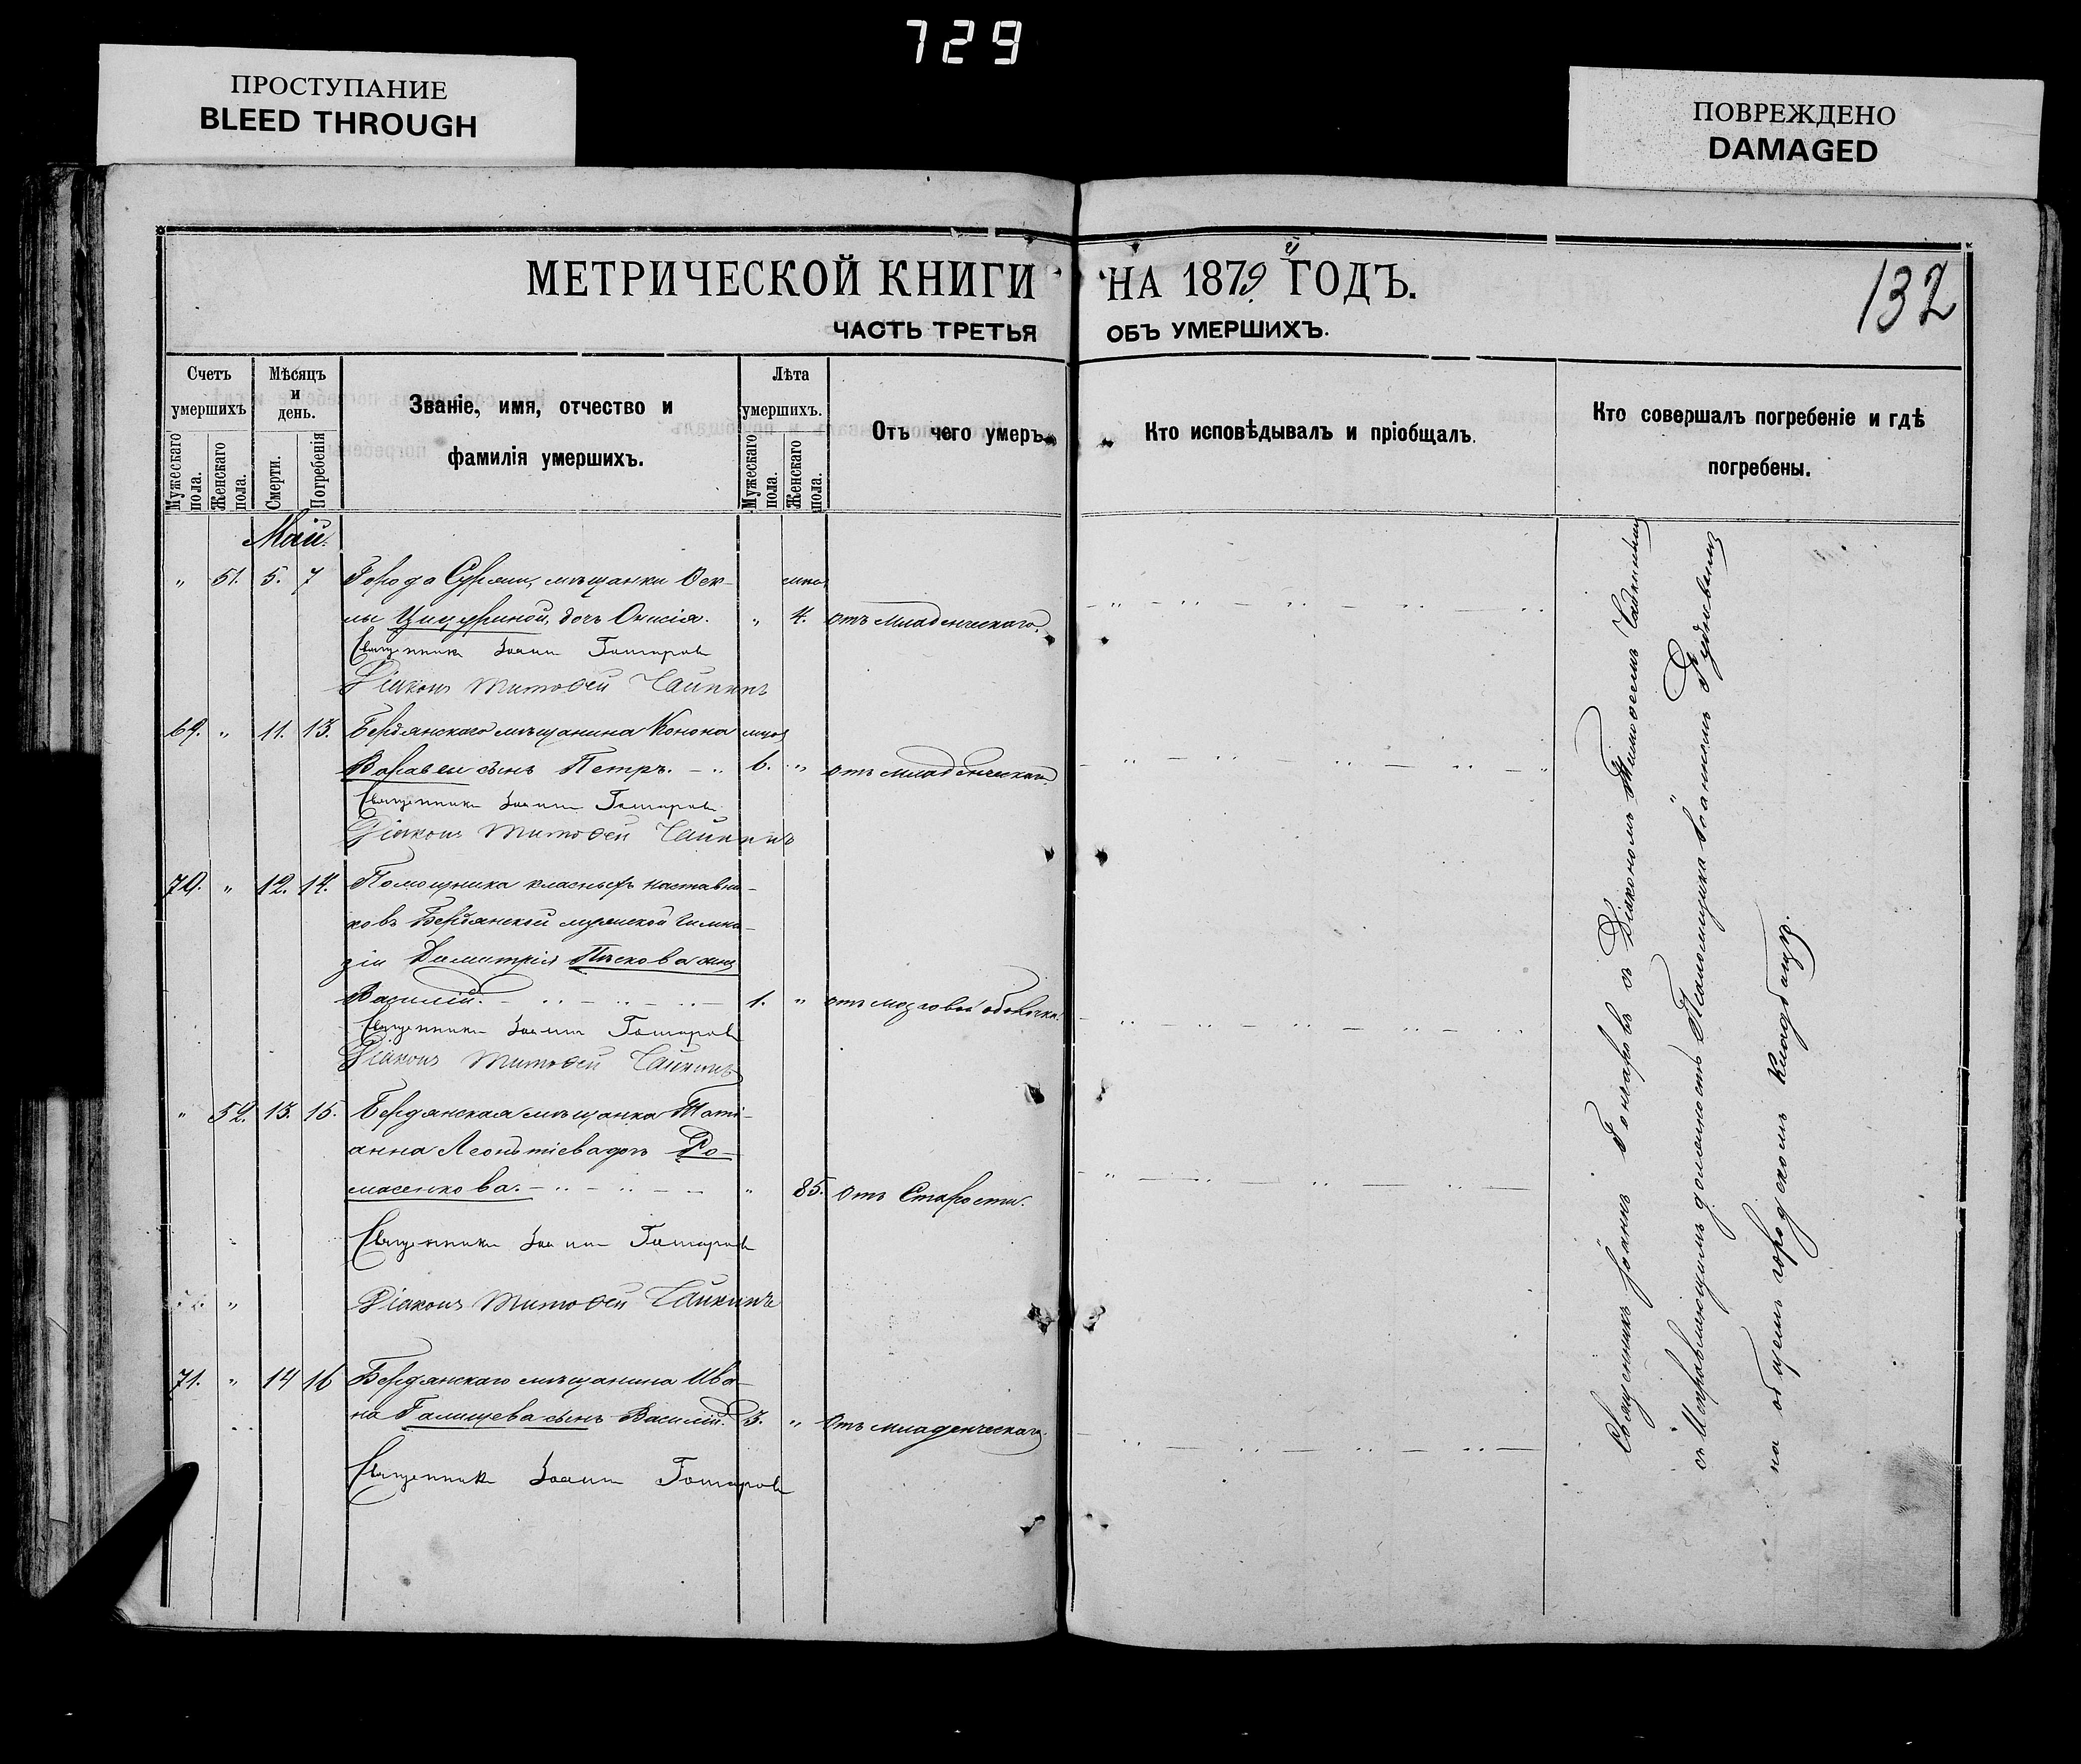 729
ПРОСТУПАНИЕ
BLEED THROUGH
ПОВРЕЖДЕНО
DAMAGED
МЕТРИЧЕСКОЙ КНИГИ НА 1879й ГОДЪ.
132
ЧАСТЬ ТРЕТЬЯ ОБЪ УМЕРШИХЪ.
Счетъ умершихъ
Мужескаго пола.
Женскаго пола.
Мѣсяцъ и день.
Смерти.
Погребенія
Званіе, имя, отчество и
фамилія умершихъ.
Лѣта умершихъ.
Мужескаго пола.
Женскаго пола.
Отъ чего умеръ.
Кто исповѣдывалъ и пріобщалъ.
Кто совершалъ погребеніе и гдѣ
погребены.
Май.
" 51. 5. 7 Города мѣщанки
дочь Онисія. " 4. отъ младенческаго.
Священникъ Іоаннъ Гончаровъ
Діаконъ Тимофей Чайкинъ
69. " 11. 13. Бердянскаго мѣщанина Конона
сынъ Петръ. 6. " отъ младенческаго.
Священникъ Іоаннъ Гончаровъ
Діаконъ Тимофей Чайкинъ
70. " 12. 14. Помощника класныхъ наставни-
ковъ Бердянской мужской гимна-
зіи Димитрія Пѣскова сынъ
Василій. 1. " отъ мозговой
Священникъ Іоаннъ Гончаровъ
Діаконъ Тимофей Чайкинъ
" 52. 13. 15. Бердянская мѣщанка Тати-
анна Леонтіева дочь Ро-
масенкова. " 85. отъ Старости.
Священникъ Іоаннъ Гончаровъ
Діаконъ Тимофей Чайкинъ
71. " 14 16 Бердянскаго мѣщанина Ива-
на Галищева сынъ Василій. 3. " отъ младенческаго.
Священникъ Іоаннъ Гончаровъ
Священникъ Іоаннъ Гончаровъ съ Діакономъ Тимофеемъ Чайкинымъ
съ Исправляющимъ должность Псаломщика Іоанномъ Рудневымъ
на общемъ городскомъ кладбищѣ.